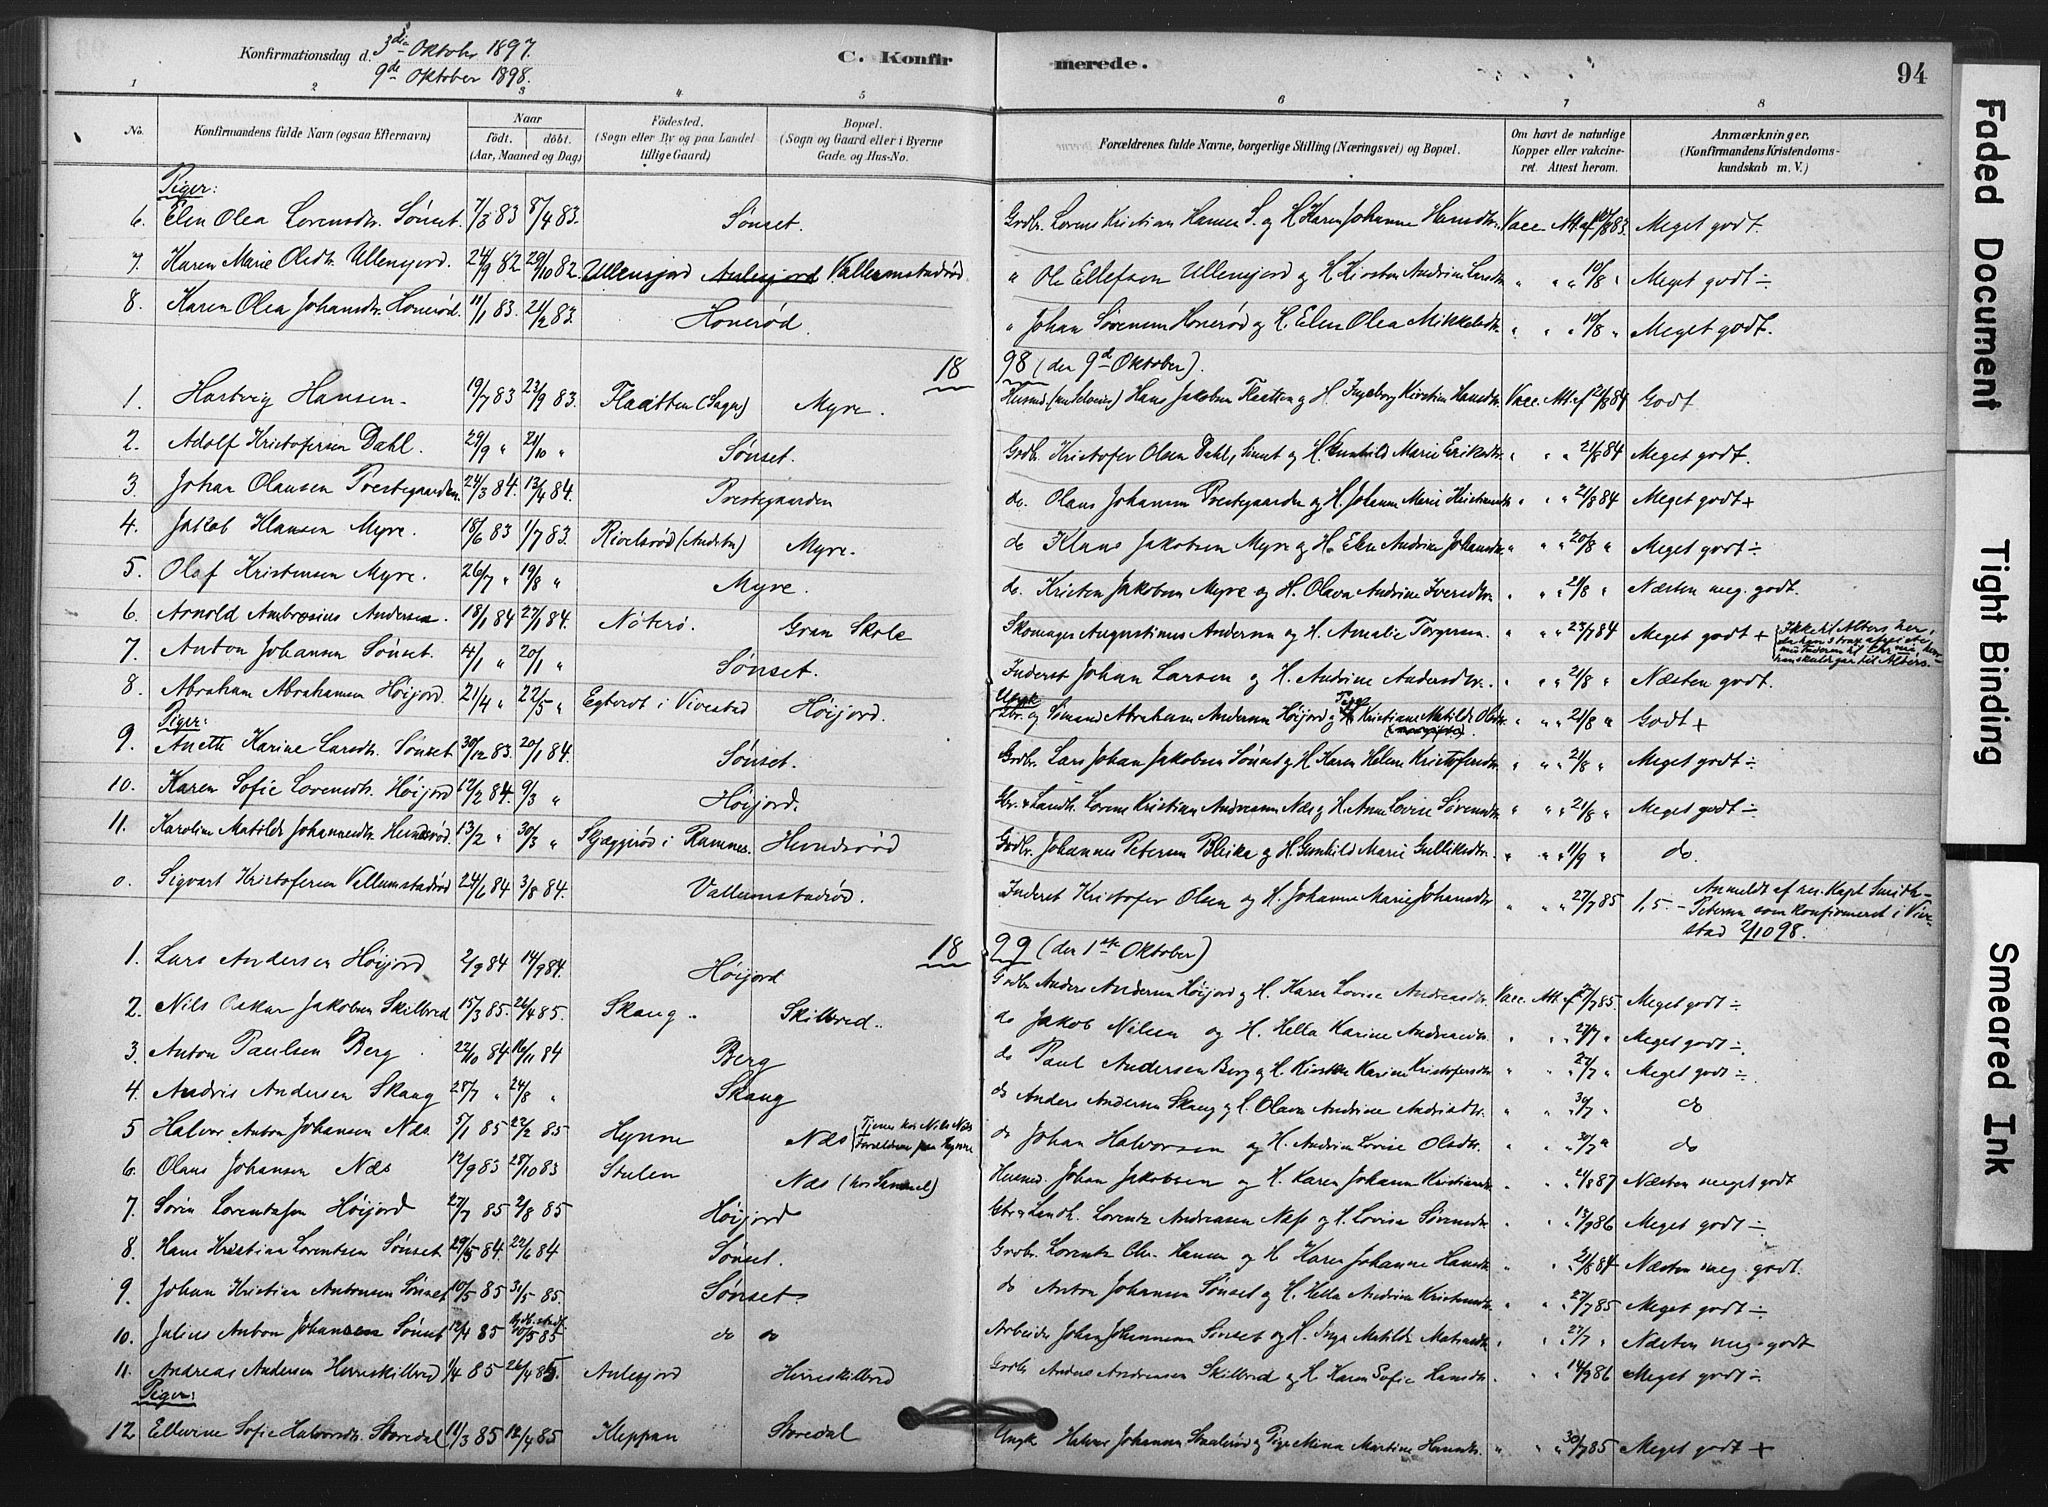 Konfirmationsdag d. 3die Oktober 1897.
9de Oktober 1898.
C. Konfir merede.
94
1 2 3 4 5 6 7 8
No. Konfirmandens fulde Navn (ogsaa Efternavn) Naar født. døbt. (Aar, Maaned og Dag) Fødested. (Sogn eller By og paa Landet tillige Gaard) Bopæl. (Sogn og Gaard eller i Byerne Gade og Hus-No. Forældrenes fulde Navne, borgerlige Stilling (Næringsvei) og Bopæl. Om havt de naturlige Kopper eller vakcineret. Attest herom. Anmærkninger. (Konfirmandens Kristendomskundskab m. V.)
Piger:
6. Elen Olea Lorensdtr. Sønset. 7/3 83 8/4 83. Sønset. Gbr. Lorens Kristian Hansen S. og H. Karen Johanne Hansdtr. Vacc. Att. af 83. Meget godt.
7. Karen Marie Olsdtr. Ullensjord. 24/9 82 29/10 82. Ullensjord Vallumstadrød. " Ole Ellefsen Ullensjord og H. Kirsten Andrine Larsdtr. " " " 10/8 " Meget godt ÷
8. Karen Olea Johansdtr. Honerød. 11/1 83. 24/2 83. Honerød. " Johan Sørensen Honerød og H. Elen Olea Mikkelsdtr. " " " 10/8 " Meget godt.
18 98 (den 9d Oktober).
1. Hartvig Hansen. 19/7 83 23/9 83. Flaatten (Sogn) Myre. Hans Jakobsen Flaatten og H. Ingeborg Kirstine Hansdtr. Vacc. Att. af 21/8 84 Godt
2. Adolf Kristofersen Dahl. 29/9 " 21/10 " Sønset. Gbr. Kristofer Olsen Dahl, Sønset og H. Gunhild Marie Eriksdtr. " " " 21/8 84 Meget godt.
3. Johan Olausen Prestegaarden. 24/3 84. 13/4 84. Prestegaarden do. Olaus Johansen Prestegaarden og H. Johanne Marie Kristensdtr. " " " 21/8 84 Meget godt +
4. Jakob Klausen Myre. 18/6 83 1/7 83. Rivelsrød (Andebu) Myre. do Klaus Jakobsen Myre og H. Elen Andrine Johansdtr. " " " 20/8 " Meget godt ÷
5. Olaf Kristensen Myre. 26/7 " 19/8 " Myre. do. Kristen Jakobsen Myre og H. Olava Andrine Iversdtr. " " " 21/8 " Næsten meg. godt.
6. Arnold Ambrosius Andersen. 18/1 84 27/1 84. Nøterø. Gran Skole Skomager Augustinus Andersen og H. Amalie Torgersen. " " " 23/7 84 Meget godt + Ikke til Alters her,
7. Anton Johansen Sønset. 4/1 " 20/1 " Sønset. Inderst Johan Larsen og H. Andrine Andersdtr. " " " 21/8 " Næsten godt.
8. Abraham Abrahamsen Høijord. 21/4 " 22/5 " Egtvedt i Vivestad Høijord. Ungk. og Sømand Abraham Andersen Høijord og Pige Kristiane Matilde Olsdtr. " " " 21/8 " Godt +
Piger:
9. Anette Karine Larsdtr. Sønset 30/12 83. 20/1 84. Sønset. Gbr. Lars Johan Jakobsen Sønset og H. Karen Helene Kristofersdtr. " " " 21/8 " Meget godt ÷
10. Karen Sofie Lorensdtr. Høijord 12/2 84. 9/3 " Høijord. Gbr. & Landh. Lorens Kristian Andreasen Næs og H. Anne Lovise Sørensdtr. " " " 21/8 " Meget godt ÷
11. Karoline Matilde Johannesdtr. Hundsrød. 13/2 " 30/3 " Skjæggerød i Ramnes. Hundsrød Gbr. Johannes Petersen Bleika og H. Gunhild Marie Gulliksdtr. " " " 11/9 " do.
o. Sigvart Kristofersen Vallumstadrød 24/6 84 3/8 84. Vallumstadrød. Inderst Kristofer Olsen og H. Johanne Marie Johansdtr. " " " 27/7 85 1,5. Anmeldt af res. Kapl. Smidt-Petersen som konfirmeret i Vivestad 2/10 98.
18 99 (den 1ste Oktober)
1. Lars Andersen Høijord 2/9 84 14/9 84. Høijord Gbr. Anders Andersen Høijord og H. Karen Lovise Andreasdtr. Vacc. Att. af 27/7 85. Meget godt ÷
2. Nils Oskar Jakobsen Skilbred 15/3 85. 26/4 85. Skaug. Skilbred. do Jakob Nilsen og H. Hella Karine Andreasdtr. " " " 27/7 " Meget godt ÷.
3. Anton Paulsen Berg 22/10 84. 16/11 84 Berg do Paul Andersen Berg og H. Kirsten Karine Kristofersdtr. " " " 27/7 " Meget godt ÷.
4. Andris Andersen Skaug 28/7 " 24/8 " Skaug do Anders Andersen Skaug og H. Olava Andrine Andrisdtr. " " " 30/7 " do
5 Halvor Anton Johansen Næs. 5/1 85 22/2 85 Hynne Næs (Tjener hos Nils Næs Forældrene paa Hynne do Johan Halvorsen og H. Andrine Lovise Olsdtr. " " " 30/7 " do
6. Olaus Johansen Næs 12/9 83 28/10 83 Stulen Næs (hos Samuel) Husmd. Johan Jakobsen og H. Karen Johanne Kristiansdtr. " " " 24/8 87 Næsten meget godt
7. Søren Lorentsen Høijord 27/7 85 2/8 85 Høijord Gbr. & Landh. Lorentz Andreasen Næss og H. Lovise Sørensdtr. " " " 13/9 86 Meget godt ÷
8. Hans Kristian Lorentsen Sønset 29/5 84. 22/6 84 Sønset. Gbr. Lorentz Chr. Hansen og H. Karen Johanne Hansdtr. " " " 21/8 84 Næsten meg. godt.
9. Johan Kristian Antonsen Sønset 10/5 85 31/5 85. Sønset. do Anton Johansen Sønset og H. Hella Andrine Kristensdtr. " " " 27/7 85 Meget godt ÷
10. Julius Anton Johansen Sønset 12/4 85 10/5 85 do do Arbeider Johan Johannesen Sønset og H. Inga Matilde Matisdtr. " " " 27/7 " Næsten meg. godt
11. Andreas Andersen Herreskilbred 1/4 85 26/4 85. Aulesjord Herreskilbred Gbr. Anders Andreasen Skilbred og H. Karen Sofie Hansdtr. " " " 14/9 86 Meget godt ÷
Piger:
12. Ellevine Sofie Halvorsdtr. Storedal 11/3 85 12/4 85 Kleppan Storedal Ungk. Halvor Johansen og Pige Mina Martine Hansdtr. " " " 30/7 85 Meget godt +
Faded Document
Tight Binding
Smeared Ink